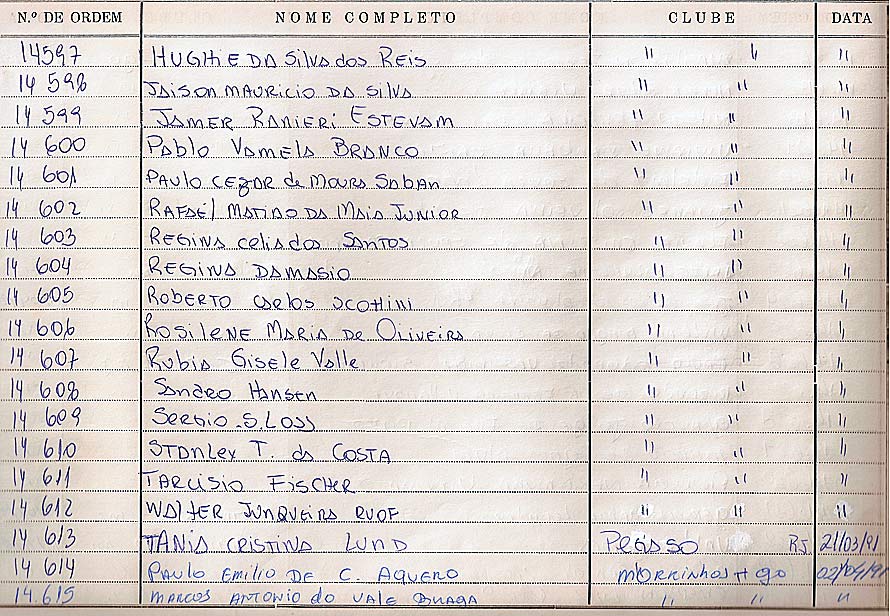 N.º DE ORDEM NOME COMPLETO CLUBE DATA
14597 HUGHIE DA Silva dos REIS " " "
14 598 JAISON MAURICIO DA SILVA " " "
14 599 JAMER RANIERI ESTEVAM " " "
14 600 Pablo VAMELA BRANCO " " "
14 601 PAULO CEZAR de MOURA SABAN " " "
14 602 RAFAEL MATIAO DA MAIA JUNIOR " " "
14 603 REGINA CELIA dos SANTOS " " "
14 604 REGINA DAMASIO " " "
14 605 ROBERTO CARLOS SCOTTINI " " "
14 606 ROSILENE MARIA DE OLIVEIRA " " "
14 607 RUBIA GISELE VALLE " " "
14 608 SANDRO HANSEN " " "
14 609 SERGIO S. LOSS " " "
14 610 STANLEY T. da COSTA " " "
14 611 TARCISIO FISCHER " " "
14 612 WALTER JUNQUEIRA RUOF " " "
14 613 TANIA CRISTINA LUND PEGASSO RJ 21/03/91
14 614 PAULO EMILIO DE C. AQUERO MORRINHOS + GO 02/04/91
14.615 MARCOS ANTONIO do VALE BRAGA " " "